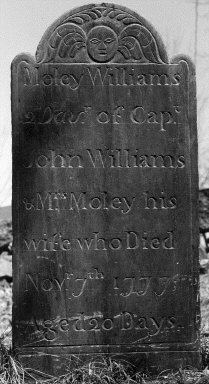 Moley Williams
2d Daur. of Capt.
John Williams
& Mrs. Moley his
wife who Died
Novr. 7th 1777
Aged 20 Days.